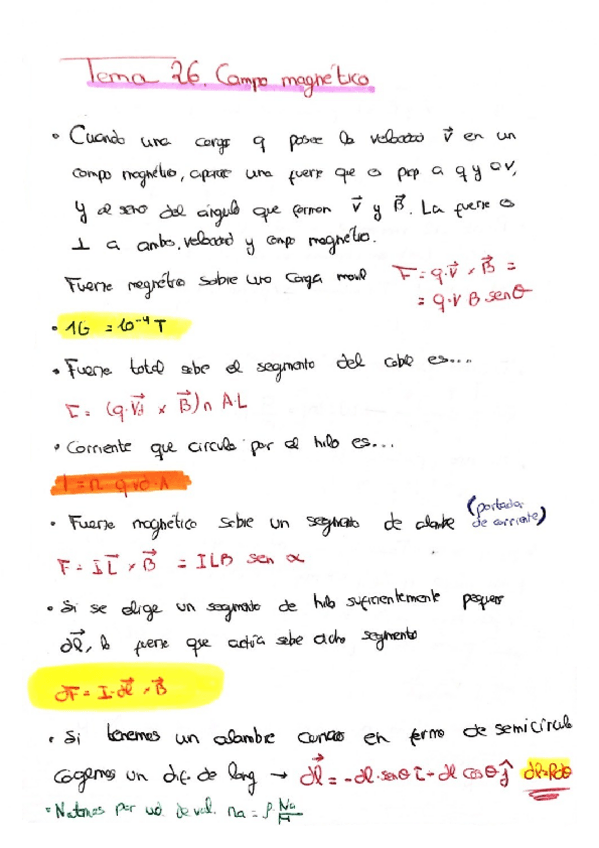 Tema 26. Campo magnético
• Cuando una carga q posee la velocidad v⃗ en un
campo magnético, aparece una fuerza que es prop a q y a v,
y al seno del ángulo que forman v⃗ y B⃗. La fuerza es
⊥ a ambos, velocidad y campo magnético.
Fuerza magnética sobre una carga movil F = q·v⃗ × B⃗ =
= q·v B senθ
• 1G = 10⁻⁴ T
• Fuerza total sobre el segmento del cable es...
F = (q·v⃗d × B⃗) n A·L
• Corriente que circula por el hilo es...
I = n q vd·A
• Fuerza magnética sobre un segmento de alambre (portador
de corriente)
F = I L⃗ × B⃗ = ILB sen α
• Si se elige un segmento de hilo suficientemente pequeño
dl⃗, la fuerza que actúa sobre dicho segmento
dF = I·dl⃗ × B⃗
• Si tenemos un alambre curvado en forma de semicírculo
cogemos un dif. de long → dl⃗ = -dl·senθ i + dl cosθ ĵ dl=Rdθ
• Nátomos por ud. de vol. na = ρ·Na/M